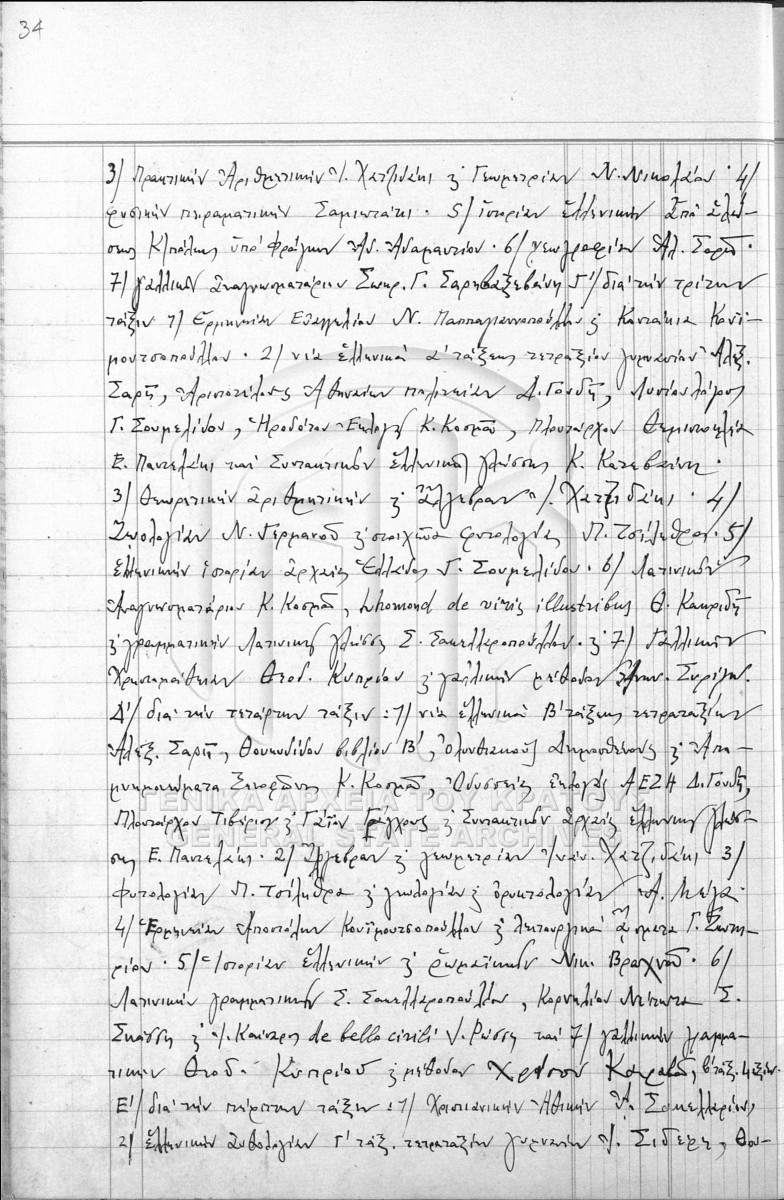 34
3/ Πρακτικὴν Ἀριθμητικὴν Ἰ. Χατζιδάκι & Γεωμετρίαν Ν. Νικολάου· 4/
φυσικὴν πειραματικὴν Σαμιωτάκι· 5/ ἱστορίαν ἑλληνικὴν ἀπὸ ἁλώ-
σεως Κ/πόλεως ὑπὸ Φράγκων Ἀδ. Ἀδαμαντίου· 6/ γεωγραφίαν Ἀλ. Σαρῆ·
7/ γαλλικὸν ἀναγνωσματάριον Σωκρ. Γ. Σαρηβαξεβάνη Γ΄/ διὰ τὴν τρίτην
τάξιν 1/ Ἑρμηνείαν Εὐαγγελίου Ν. Παππαγιαννοπούλου & Κοντάκια Κοντι-
μουτσοπούλου· 2/ νέα ἑλληνικὰ α΄ τάξεως τετραξίου γυμνασίου Ἀλεξ.
Σαρῆ, Ἀριστοτέλους Ἀθηναίων πολιτείαν Δ. Γουδῆ, Λυσίου λόγους
Γ. Σουμελίδου, Ἡροδότου Ἐκλογὰς Κ. Κοσμᾶ, Πλουτάρχου Θεμιστοκλέα
Ε. Παντελάκη καὶ Συντακτικὸν ἑλληνικῆς γλώσσης Κ. Κατεβαίνη·
3/ Θεωρητικὴν ἀριθμητικὴν & Ἄλγεβραν Ἰ. Χατζιδάκι· 4/
Ζῳολογίαν Ν. Γερμανοῦ & στοιχεῖα φυτολογίας Π. Τσίληθρα· 5/
ἑλληνικὴν ἱστορίαν ἀρχαίας Ἑλλάδος Γ. Σουμελίδου· 6/ Λατινικὸν
Ἀναγνωσματάριον Κ. Κοσμᾶ, Lhomond de viris illustribus Θ. Κακριδῆ
& γραμματικὴν Λατινικῆς γλώσσης Σ. Σακελλαροπούλου· & 7/ Γαλλικὴν
Χρηστομάθειαν Θεοδ. Κυπρίου & γαλλικὴν μέθοδον Ἀντων. Συρίγου.
Δ΄/ διὰ τὴν τετάρτην τάξιν: 1/ νέα ἑλληνικὰ Β΄ τάξεως τετραταξίου
Ἀλεξ. Σαρῆ, Θουκυδίδου βιβλίον Β΄, Ὀλυνθιακοὺς Δημοσθένους & Ἀπο-
μνημονεύματα Ξενοφῶντος Κ. Κοσμᾶ, Ὀδυσσείας ἐκλογὰς ΑΕΖΗ Δ. Γουδῆ,
Πλουτάρχου Τιβέριον & Γάϊον Γράγχους & Συντακτικὸν ἀρχαίας ἑλληνικῆς γλώσ-
σης Ε. Παντελάκη· 2/ Ἄλγεβραν & γεωμετρίαν Ἰωάν. Χατζιδάκι· 3/
Φυτολογίαν Π. Τσίληθρα & γεωλογίαν & ὀρυκτολογίαν Α. Μέγα·
4/ Ἑρμηνείαν Ἀποστόλων Κοντιμουτσοπούλου & λειτουργικὰ ᾄσματα Γ. Σωτη-
ρίου· 5/ Ἱστορίαν ἑλληνικὴν & ῥωμαϊκὴν Νικ. Βραχνοῦ· 6/
Λατινικὴν γραμματικὴν Σ. Σακελλαροπούλου, Κορνηλίου Νέπωτα Σ.
Σκάσση & Ἰ. Καίσαρος de bello civili Ν. Ρώσση καὶ 7/ γαλλικὴν γραμμα-
τικὴν Θεοδ. Κυπρίου & μέθοδον Χρήστου Καραβᾶ, β΄ τάξ. 4ταξίου.
Ε΄/ διὰ τὴν πέμπτην τάξιν: 1/ Χριστιανικὴν Ἠθικὴν Ἰ. Σακελλαρίου,
2/ ἑλληνικὴν ἀνθολογίαν Γ΄ τάξ. τετραταξίου γυμνασίου Ἰ. Σιδέρη, Θου-
ΓΕΝΙΚΑ ΑΡΧΕΙΑ ΤΟΥ ΚΡΑΤΟΥΣ
GENERAL STATE ARCHIVES